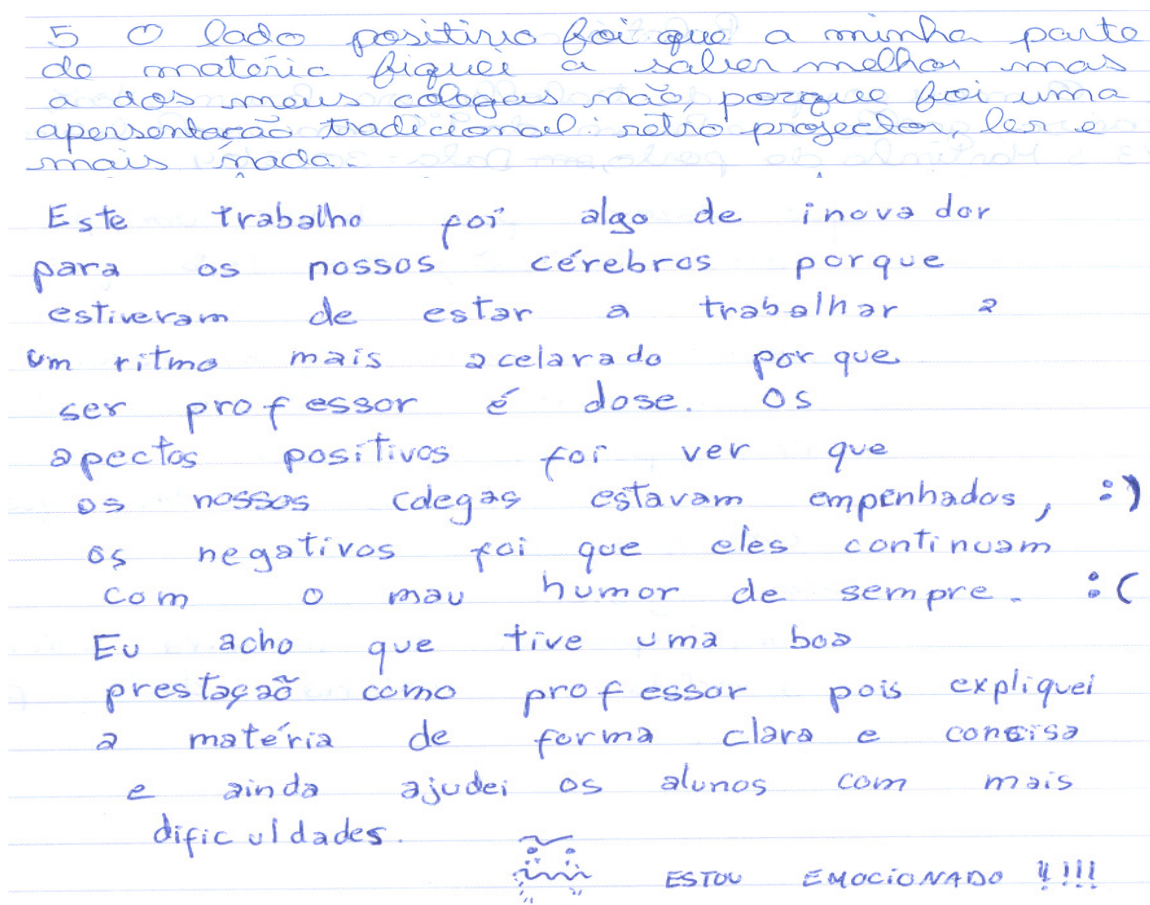 5 O lado positivo foi que a minha parte
de matéria fiquei a saber melhor mas
a dos meus cologas não, porque foi uma
apersentação tradicional: retro projector, ler e
mais nada.
Este trabalho foi algo de inovador
para os nossos cérebros porque
estiveram de estar a trabalhar a
um ritmo mais acelarado porque
ser professor é dose. Os
apectos positivos foi ver que
os nossos colegas estavam empenhados, :)
os negativos foi que eles continuam
com o mau humor de sempre. :(
Eu acho que tive uma boa
prestação como professor pois expliquei
a matéria de forma clara e concisa
e ainda ajudei os alunos com mais
dificuldades.
ESTOU EMOCIONADO !!!!